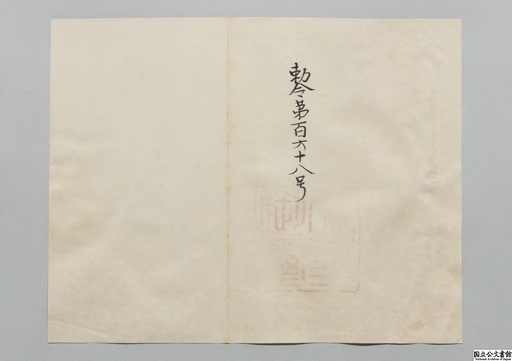 勅令第百六十八号
国立公文書館
National Archives of Japan